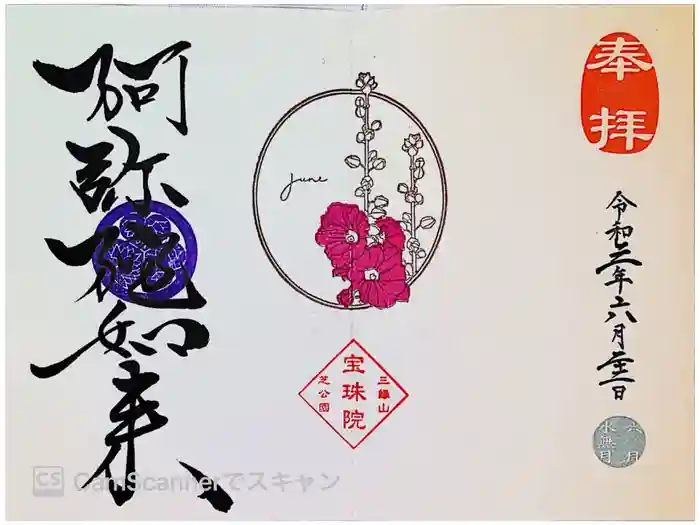 奉拝
令和三年六月
日
六月
水無月
June
三縁山
宝珠院
芝公園
阿弥陀如来
CS CamScannerでスキャン